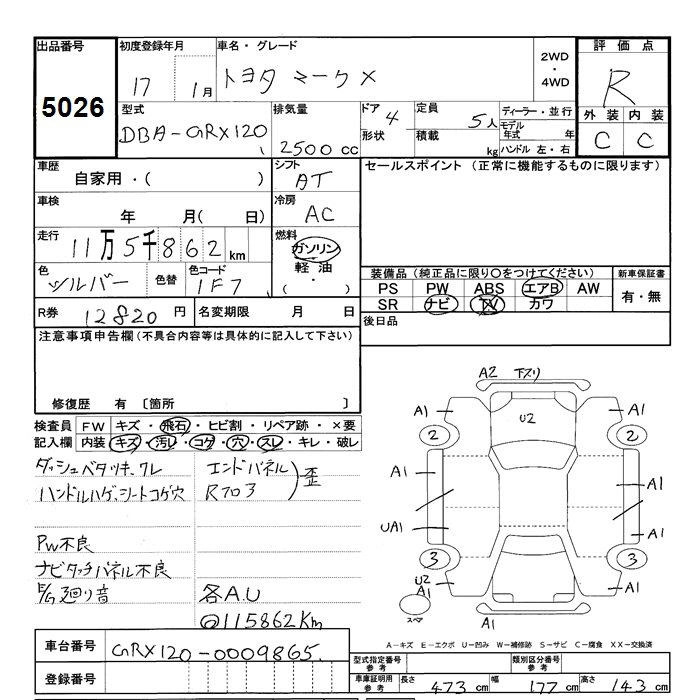 出品番号
5026
初度登録年月
17 1月
車名・グレード
トヨタ マークX
2WD
・
4WD
評価点
R
外装 内装
C C
型式
DBA-GRX120
排気量
2500 cc
ドア 4
形状
定員 5人
積載 kg
ディーラー・並行
モデル年式 年
ハンドル 左・右
車歴
自家用・( )
車検
年 月( 日)
走行
11万5千862km
色
シルバー
色替
色コード
1F7
シフト
AT
冷房
AC
燃料
ガソリン
軽油
( ・ )
セールスポイント (正常に機能するものに限ります)
装備品 (純正品に限り○をつけてください)
PS PW ABS エアB AW
SR ナビ TV カワ
新車保証書
有・無
後日品
R券 12820 円
名変期限 月 日
注意事項申告欄 (不具合内容等は具体的に記入して下さい)
修復歴 有 〔箇所 〕
検査員 FW キズ・飛石・ヒビ割・リペア跡・×要
記入欄 内装 キズ・汚レ・コゲ・穴・スレ・キレ・破レ
ダッシュベタツキ.ワレ
ハンドルハゲ.シートコゲ穴
PW不良
ナビタッチパネル不良
廻り音
エンドパネル
Rフロア
歪
各A.U
@115862Km
A2 下スリ
A1 U2 A1
2 2
A1 A1
UA1 A1
3 3
U2
A1 A1
スペア
A1
A-キズ E-エクボ U-凹み W-補修跡 S-サビ C-腐食 XX-交換済
車台番号 GRX120-0009865.
登録番号
型式指定番号 参考
類別区分番号 参考
車庫証明用 参考
長さ 473 cm 幅 177 cm 高さ 143 cm